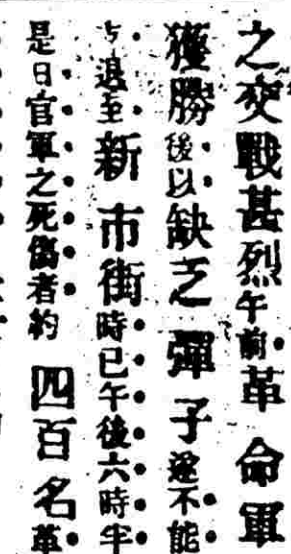 之交戰甚烈午前革命軍
獲勝後以缺乏彈子遂不能
退至新市街時已午後六時半
是日官軍之死傷者約四百名革